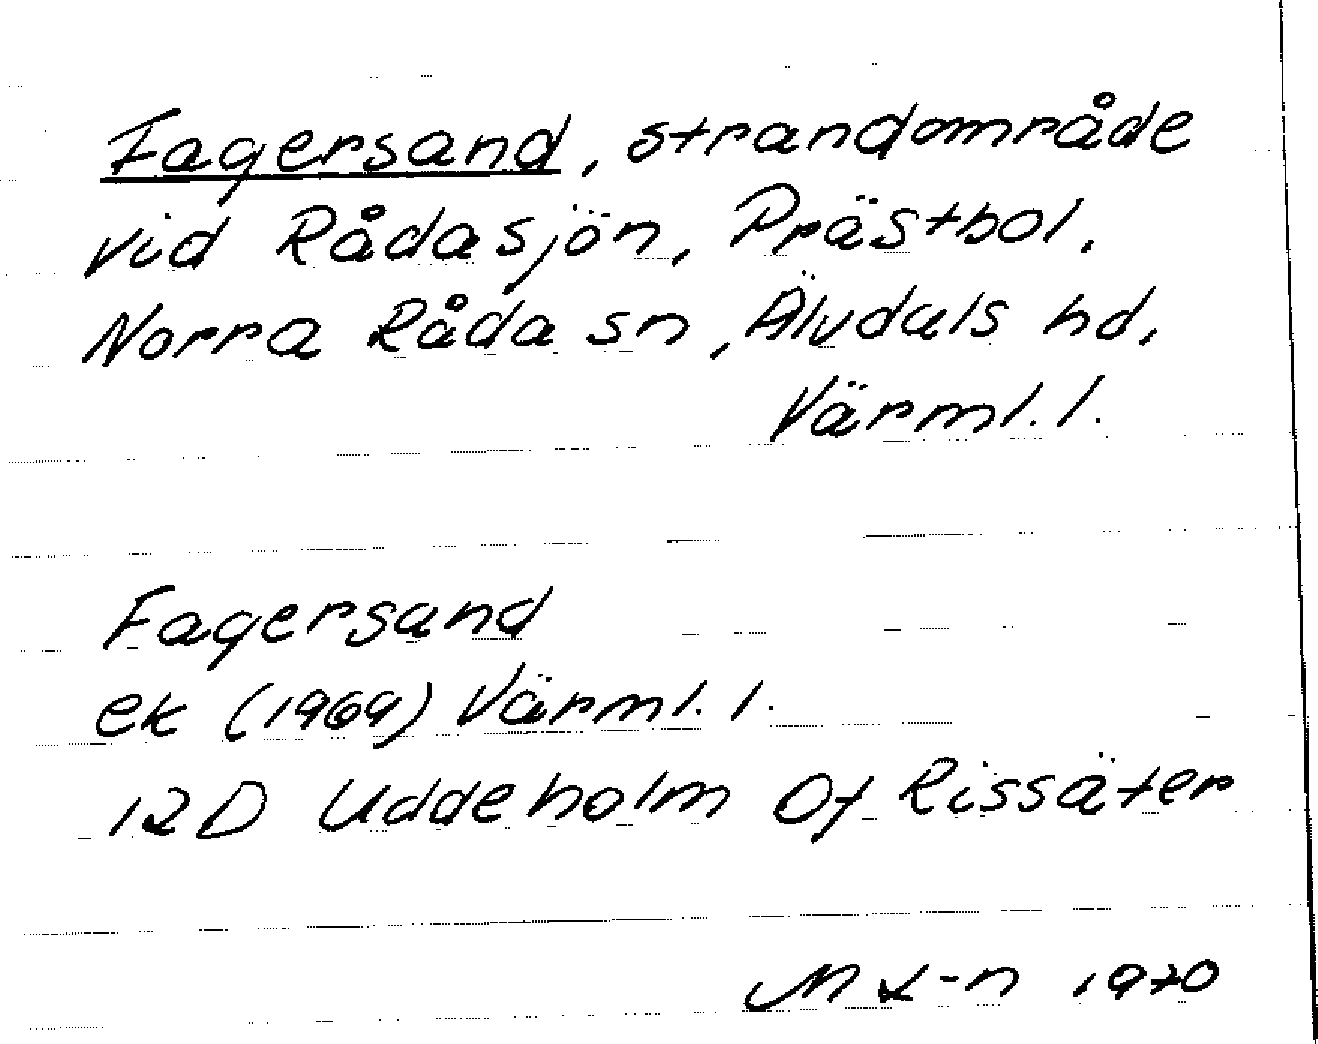 Fagersand, strandområde
vid Rådasjön, Prästbol,
Norra Råda sn, Älvdals hd,
Värml. l.
Fagersand
ek (1969) Värml. l.
12D Uddeholm 0f Rissäter
1970